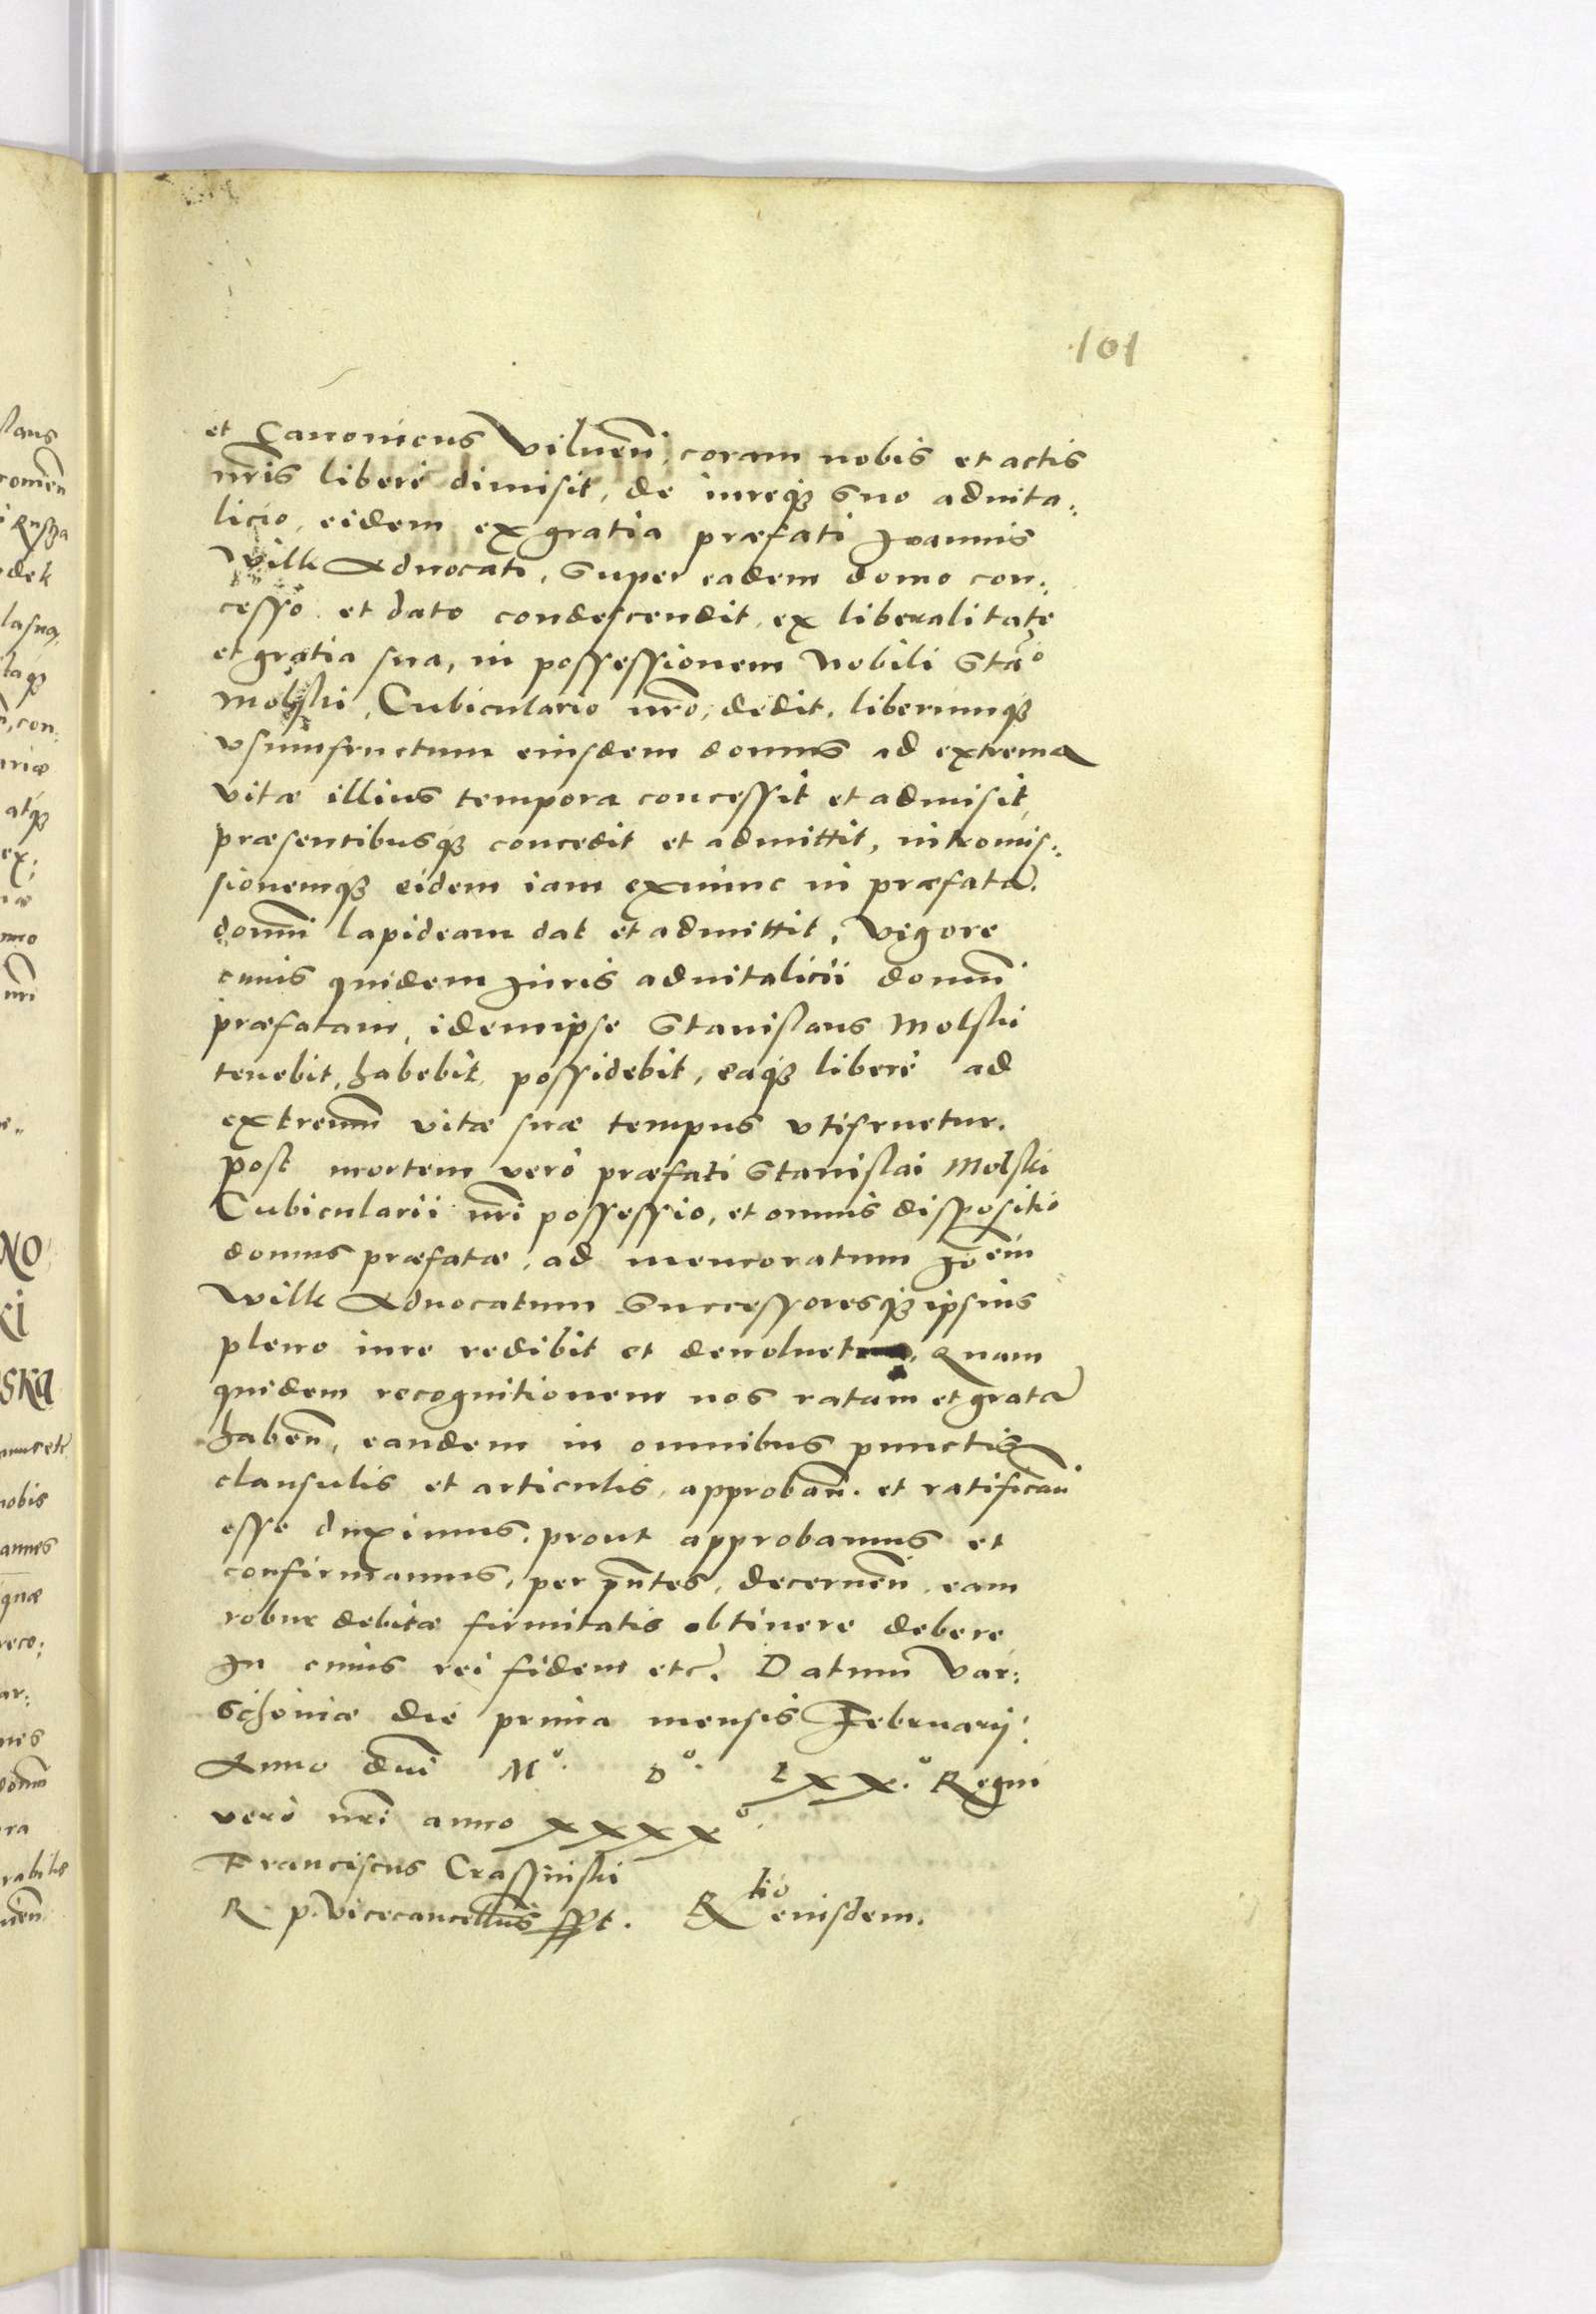 101
et Canonicus Vilnen̄. coram nobis et actis
nr̄is liberè dimisit, de iureq3 suo aduita:
licio, eidem ex gratia præfati Joannis
Wilk Aduocati, super eadem domo con:
cesso et dato condescendit, ex liberalitate
et gratia sua, in possessionem Nobili Stāo
Molski, Cubiculario nr̄o, dedit. liberumq3
vsumfructum eiusdem domus ad extrema
vitæ illius tempora concessit et admisit,
præsentibusq3 concedit et admittit, intromis:
sionemq3 eidem iam exnunc in præfatā.
domū lapideam dat et admittit, Vigore
cuius quidem Juris aduitalicii domū
præfatam, idemipse Stanislaus Molski
tenebit, habebit, possidebit, eaq3 liberè ad
extremū vitæ suæ tempus vtifruetur.
Post mortem verò præfati Stanislai Molski
Cubicularii nr̄i possessio, et omnis dispositio
domus præfatæ, ad memoratum Joēm
Wilk Aduocatum Successoresq3 ipsius
pleno iure redibit et deuoluet. Quam
quidem recognitionem nos ratam et gratā
haben̄, eandem in omnibus punctis
clausulis et articulis, approban̄. et ratifican̄
esse duximus. prout approbamus et
confirmamus, per pn̄tes, decernen̄. eam
robur debitæ firmitatis obtinere debere
In cuius rei fidem etc̄. Datum Var:
schouiæ die prima mensis Februarij.
Anno dn̄i Mº. Dº. LXX.º Regni
verò nr̄i anno XXXXº.
Franciscus Crassinski
R. P. Vicecancellr̄us sspt. Rtio eiusdem.